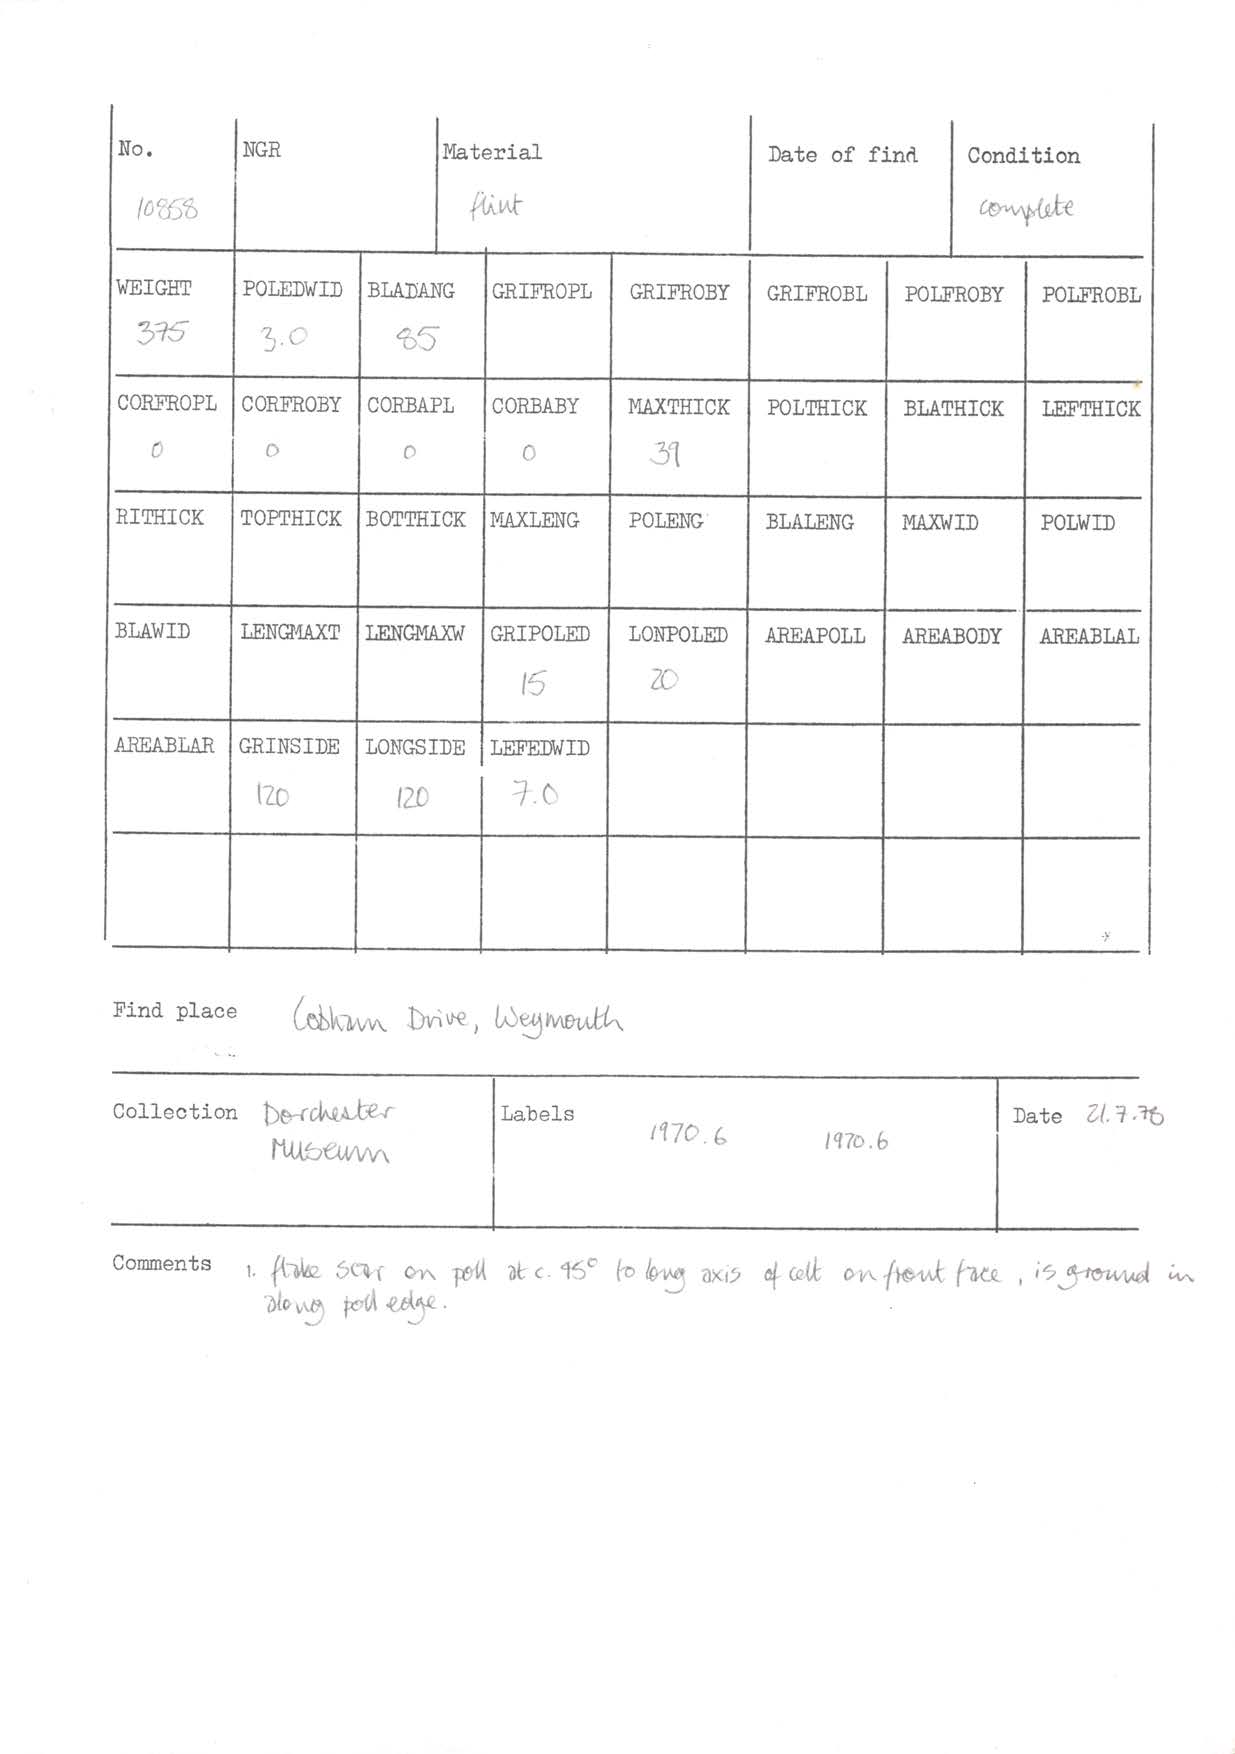 No. NGR Material Date of find Condition
10858 flint complete
WEIGHT POLEDWID BLADANG GRIFROPL GRIFROBY GRIFROBL POLFROBY POLFROBL
375 3.0 85
CORFROPL CORFROBY CORBAPL CORBABY MAXTHICK POLTHICK BLATHICK LEFTHICK
0 0 0 0 39
RITHICK TOPTHICK BOTTHICK MAXLENG POLENG BLALENG MAXWID POLWID
BLAWID LENGMAXT LENGMAXW GRIPOLED LONPOLED AREAPOLL AREABODY AREABLAL
15 20
AREABLAR GRINSIDE LONGSIDE LEFEDWID
120 120 7.0
Find place Cobham Drive, Weymouth
Collection Dorchester Labels Date 21.7.78
Museum 1970.6 1970.6
Comments 1. flake scar on poll at c. 45° to long axis of celt on front face, is ground in
along poll edge.